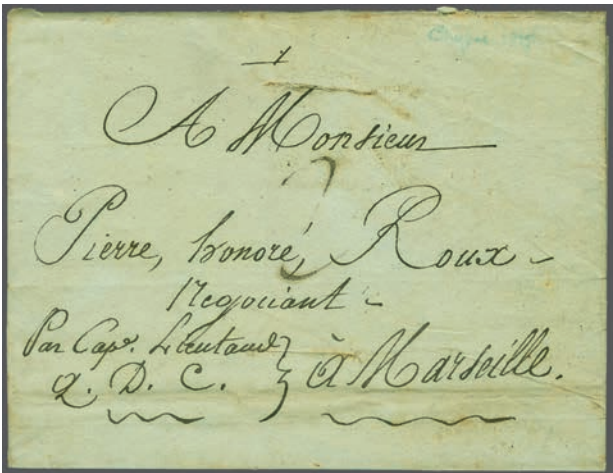 A Monsieur
2
Pierre, honoré, Roux
Negociant
Par Cap.ne Lieutaud
Q. D. C. à Marseille.